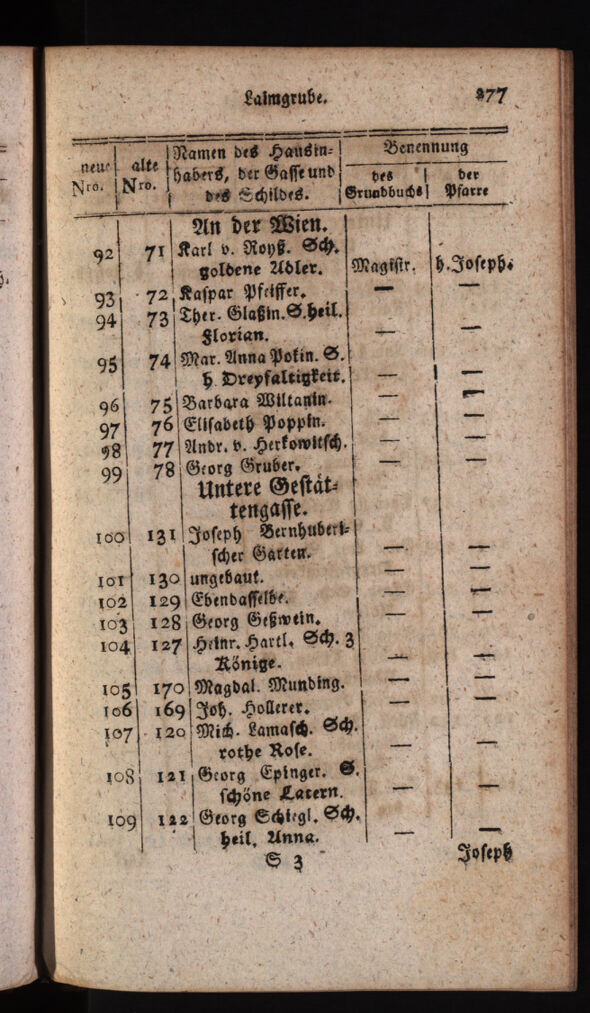 Laimgrube. 277
neue Nro. | alte Nro. | Namen des Hausin- | Benennung
habers, der Gasse und | des | der
des Schildes. | Grundbuchs | Pfarre
An der Wien.
92 71 Karl v. Royß. Sch.
goldene Adler. Magistr. h. Joseph.
93 72 Kaspar Pfeiffer. — —
94 73 Ther. Glaßin. S. heil.
Florian. — —
95 74 Mar. Anna Pokin. S.
h. Dreyfaltigkeit. — —
96 75 Barbara Wiltanin. — —
97 76 Elisabeth Poppin. — —
98 77 Andr. v. Herkowitsch. — —
99 78 Georg Gruber. — —
Untere Gestät-
tengasse.
100 131 Joseph Bernhuberi-
scher Garten. — —
101 130 ungebaut. — —
102 129 Ebendasselbe. — —
103 128 Georg Geßwein. — —
104 127 Heinr. Hartl. Sch. 3
Könige. — —
105 170 Magdal. Munding. — —
106 169 Joh. Hollerer. — —
107 120 Mich. Lamasch. Sch.
rothe Rose. — —
108 121 Georg Epinger. S.
schöne Latern. — —
109 122 Georg Schiegl. Sch.
heil. Anna. — —
S 3 Joseph